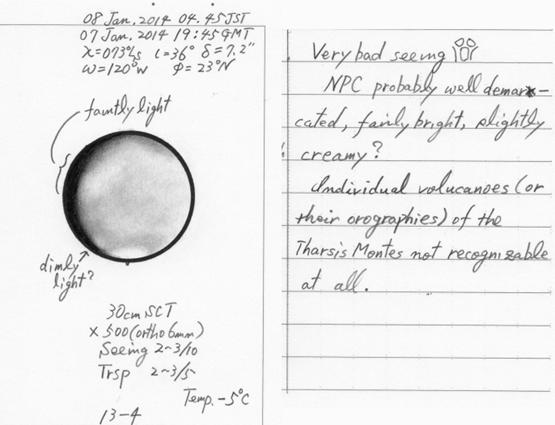 08 Jan, 2014 04:45 JST
07 Jan, 2014 19:45 GMT
λ=073°Ls ι=36° δ=7.2"
ω=120°W Φ=23°N
faintly light
dimly
light?
30cm SCT
×500 (ortho 6mm)
Seeing 2~3/10
Trsp 2~3/5
Temp. -5°C
13-4
Very bad seeing
NPC probably well demar-
cated, fairly bright, slightly
creamy?
Individual volucanoes (or
their orographies) of the
Tharsis Montes not recognizable
at all.